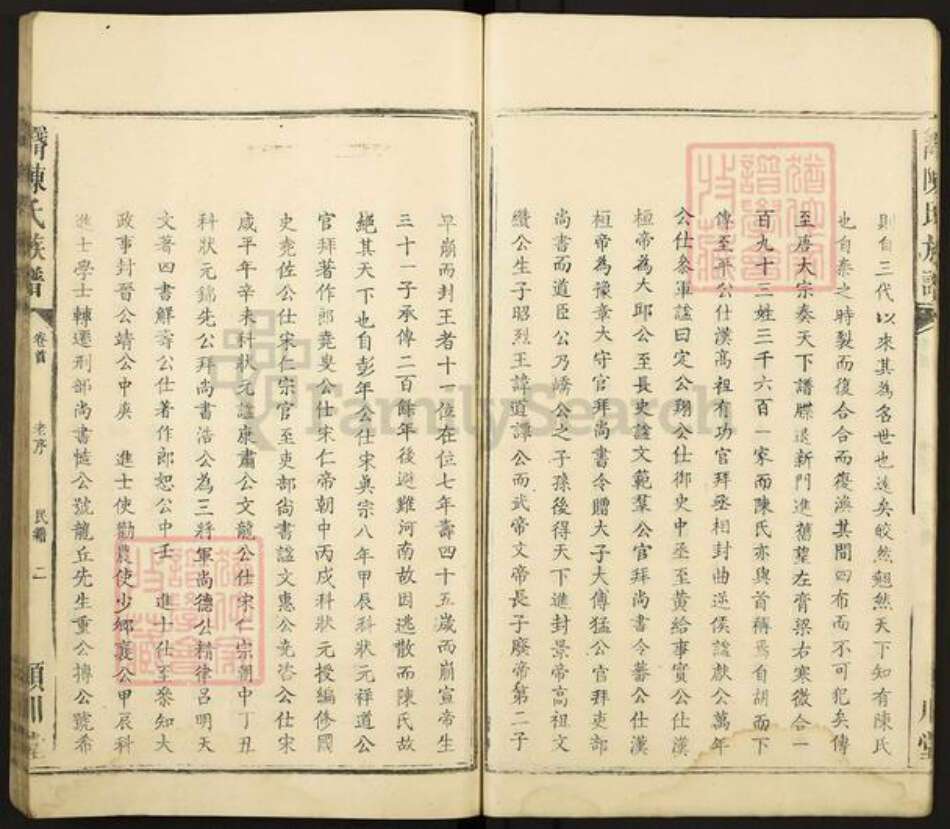 則自三代以來其為名世也遠矣皎然懇然天下知有陳氏
也自秦之時裂而復合合而復渙其間四布而不可犯矣傳
至唐太宗奏天下譜牒退新門進舊望左膏梁右寒微合一
百九十三姓三千六百一家而陳氏亦與首稱焉自胡而下
傳至平公仕漢高祖有功官拜丞相封曲逆侯諡獻公萬年
公仕參軍諡曰定公翔公仕御史中丞至黃給事實公仕漢
桓帝為大邱公至長史諡文範羣公官拜尚書令蕃公仕漢
桓帝為豫章大守官拜尚書令贈大子大傅猛公官拜吏部
尚書而道臣公乃嶠公之子孫後得天下進封景帝高祖文
纘公生子昭烈王諱道譚公而武帝文帝長子廢帝第二子
早崩而封王者十一位在位七年壽四十五歲而崩宣帝生
三十一子承傳二百餘年後避難河南故因逃散而陳氏故
絕其天下也自彭年公仕宋真宗八年甲辰科狀元祥道公
官拜著作郎堯叟公仕宋仁帝朝中丙戌科狀元授編修國
史堯佐公仕宋仁宗官至吏部尚書諡文惠公堯咨公仕宋
咸平年辛未科狀元諡康肅公文龍公仕宋仁宗朝中丁丑
科狀元錦先公拜尚書浩公為三將軍尚德公精律呂明天
文著四書解壽公仕著作郎恕公中壬 進士仕至參知大
政事封晉公靖公中庚 進士使勸農使少鄉襄公甲辰科
進士學士轉遷刑部尚書慥公號龍丘先生重公摶公號希
陳氏族譜
卷首
老序
民籍
二
潁川堂
FamilySearch